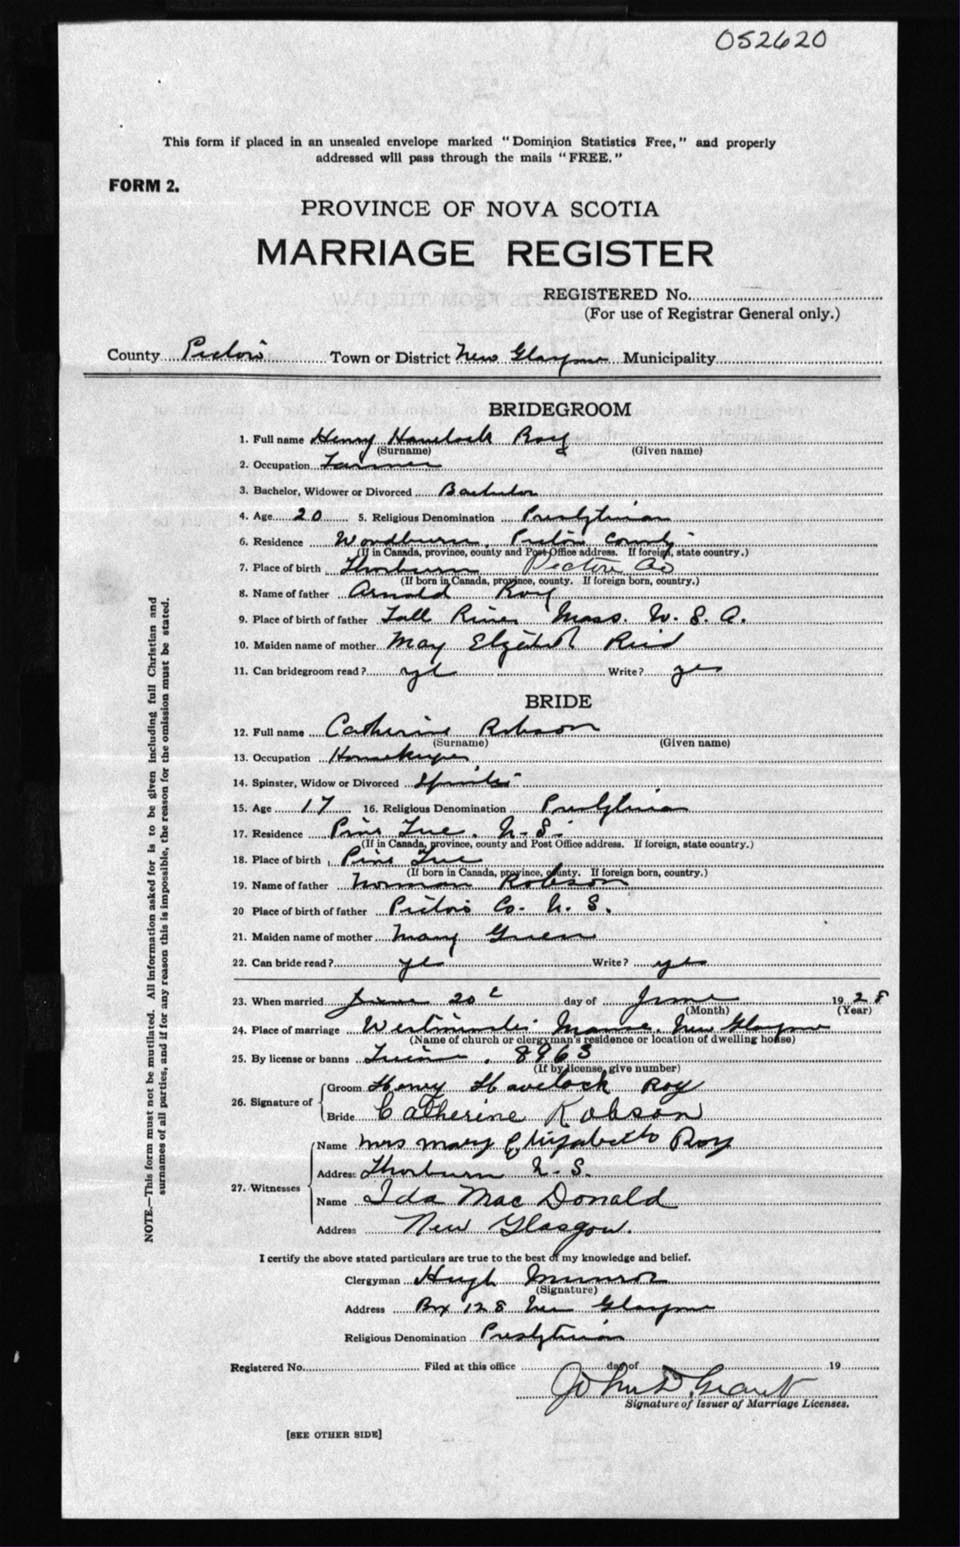 052620
This form if placed in an unsealed envelope marked "Dominion Statistics Free," and properly
addressed will pass through the mails "FREE."
FORM 2.
PROVINCE OF NOVA SCOTIA
MARRIAGE REGISTER
REGISTERED No.
(For use of Registrar General only.)
County Pictou Town or District New Glasgow Municipality
BRIDEGROOM
1. Full name Henry Havelock Roy
(Surname) (Given name)
2. Occupation Farmer
3. Bachelor, Widower or Divorced Bachelor
4. Age 20 5. Religious Denomination Presbyterian
6. Residence Woodburn, Pictou County
(If in Canada, province, county and Post Office address. If foreign, state country.)
7. Place of birth Thorburn Pictou Co
(If born in Canada, province, county. If foreign born, country.)
8. Name of father Arnold Roy
9. Place of birth of father Fall River Mass. U. S. A.
10. Maiden name of mother May Elizabeth Reid
11. Can bridegroom read? yes Write? yes
BRIDE
12. Full name Catherine Robson
(Surname) (Given name)
13. Occupation Housekeeper
14. Spinster, Widow or Divorced Spinster
15. Age 17 16. Religious Denomination Presbyterian
17. Residence Pine Tree. N. S.
(If in Canada, province, county and Post Office address. If foreign, state country.)
18. Place of birth Pine Tree
(If born in Canada, province, county. If foreign born, country.)
19. Name of father Norman Robson
20 Place of birth of father Pictou Co. N. S.
21. Maiden name of mother Mary Green
22. Can bride read? yes Write? yes
23. When married 20 day of June 1928
(Month) (Year)
24. Place of marriage Westminster Manse, New Glasgow
(Name of church or clergyman's residence or location of dwelling house)
25. By license or banns License. 8963
(If by license, give number)
26. Signature of
Groom Henry Havelock Roy
Bride Catherine Robson
27. Witnesses
Name Mrs Mary Elizabeth Roy
Address Thorburn N. S.
Name Ida Mac Donald
Address New Glasgow.
I certify the above stated particulars are true to the best of my knowledge and belief.
Clergyman Hugh Munroe
(Signature)
Address Box 128 New Glasgow
Religious Denomination Presbyterian
Registered No. Filed at this office day of 19
John D. Grant
Signature of Issuer of Marriage Licenses.
[SEE OTHER SIDE]
NOTE.—This form must not be mutilated. All information asked for is to be given including full Christian and
surnames of all parties, and if for any reason this is impossible, the reason for the omission must be stated.